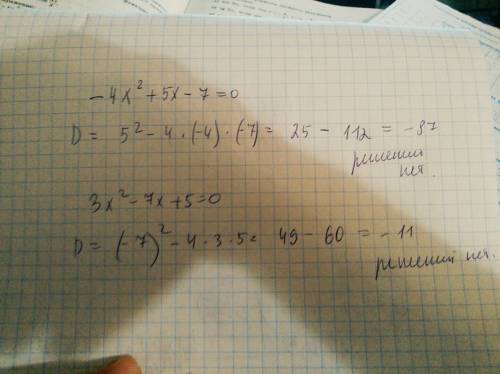 -4x² + 5x - 7 = 0
D = 5² - 4 · (-4) · (-7) = 25 - 112 = -87
решений
нет.
3x² - 7x + 5 = 0
D = (-7)² - 4 · 3 · 5 = 49 - 60 = -11
решений нет.